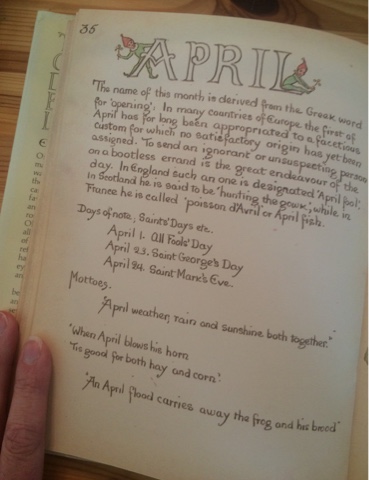 35
APRIL
The name of this month is derived from the Greek word
for 'opening'. In many countries of Europe the first of
April has for long been appropriated to a facetious
custom for which no satisfactory origin has yet been
assigned. To send an ignorant or unsuspecting person
on a bootless errand is the great endeavour of the
day. In England such an one is designated 'April fool'.
In Scotland he is said to be 'hunting the gowk', while in
France he is called 'poisson d'Avril' or April fish.
Days of note, Saints' Days etc.
April 1. All Fools' Day
April 23. Saint George's Day
April 24. Saint Mark's Eve.
Mottoes.
"April weather, rain and sunshine both together."
"When April blows his horn
'Tis good for both hay and corn."
"An April flood carries away the frog and his brood"